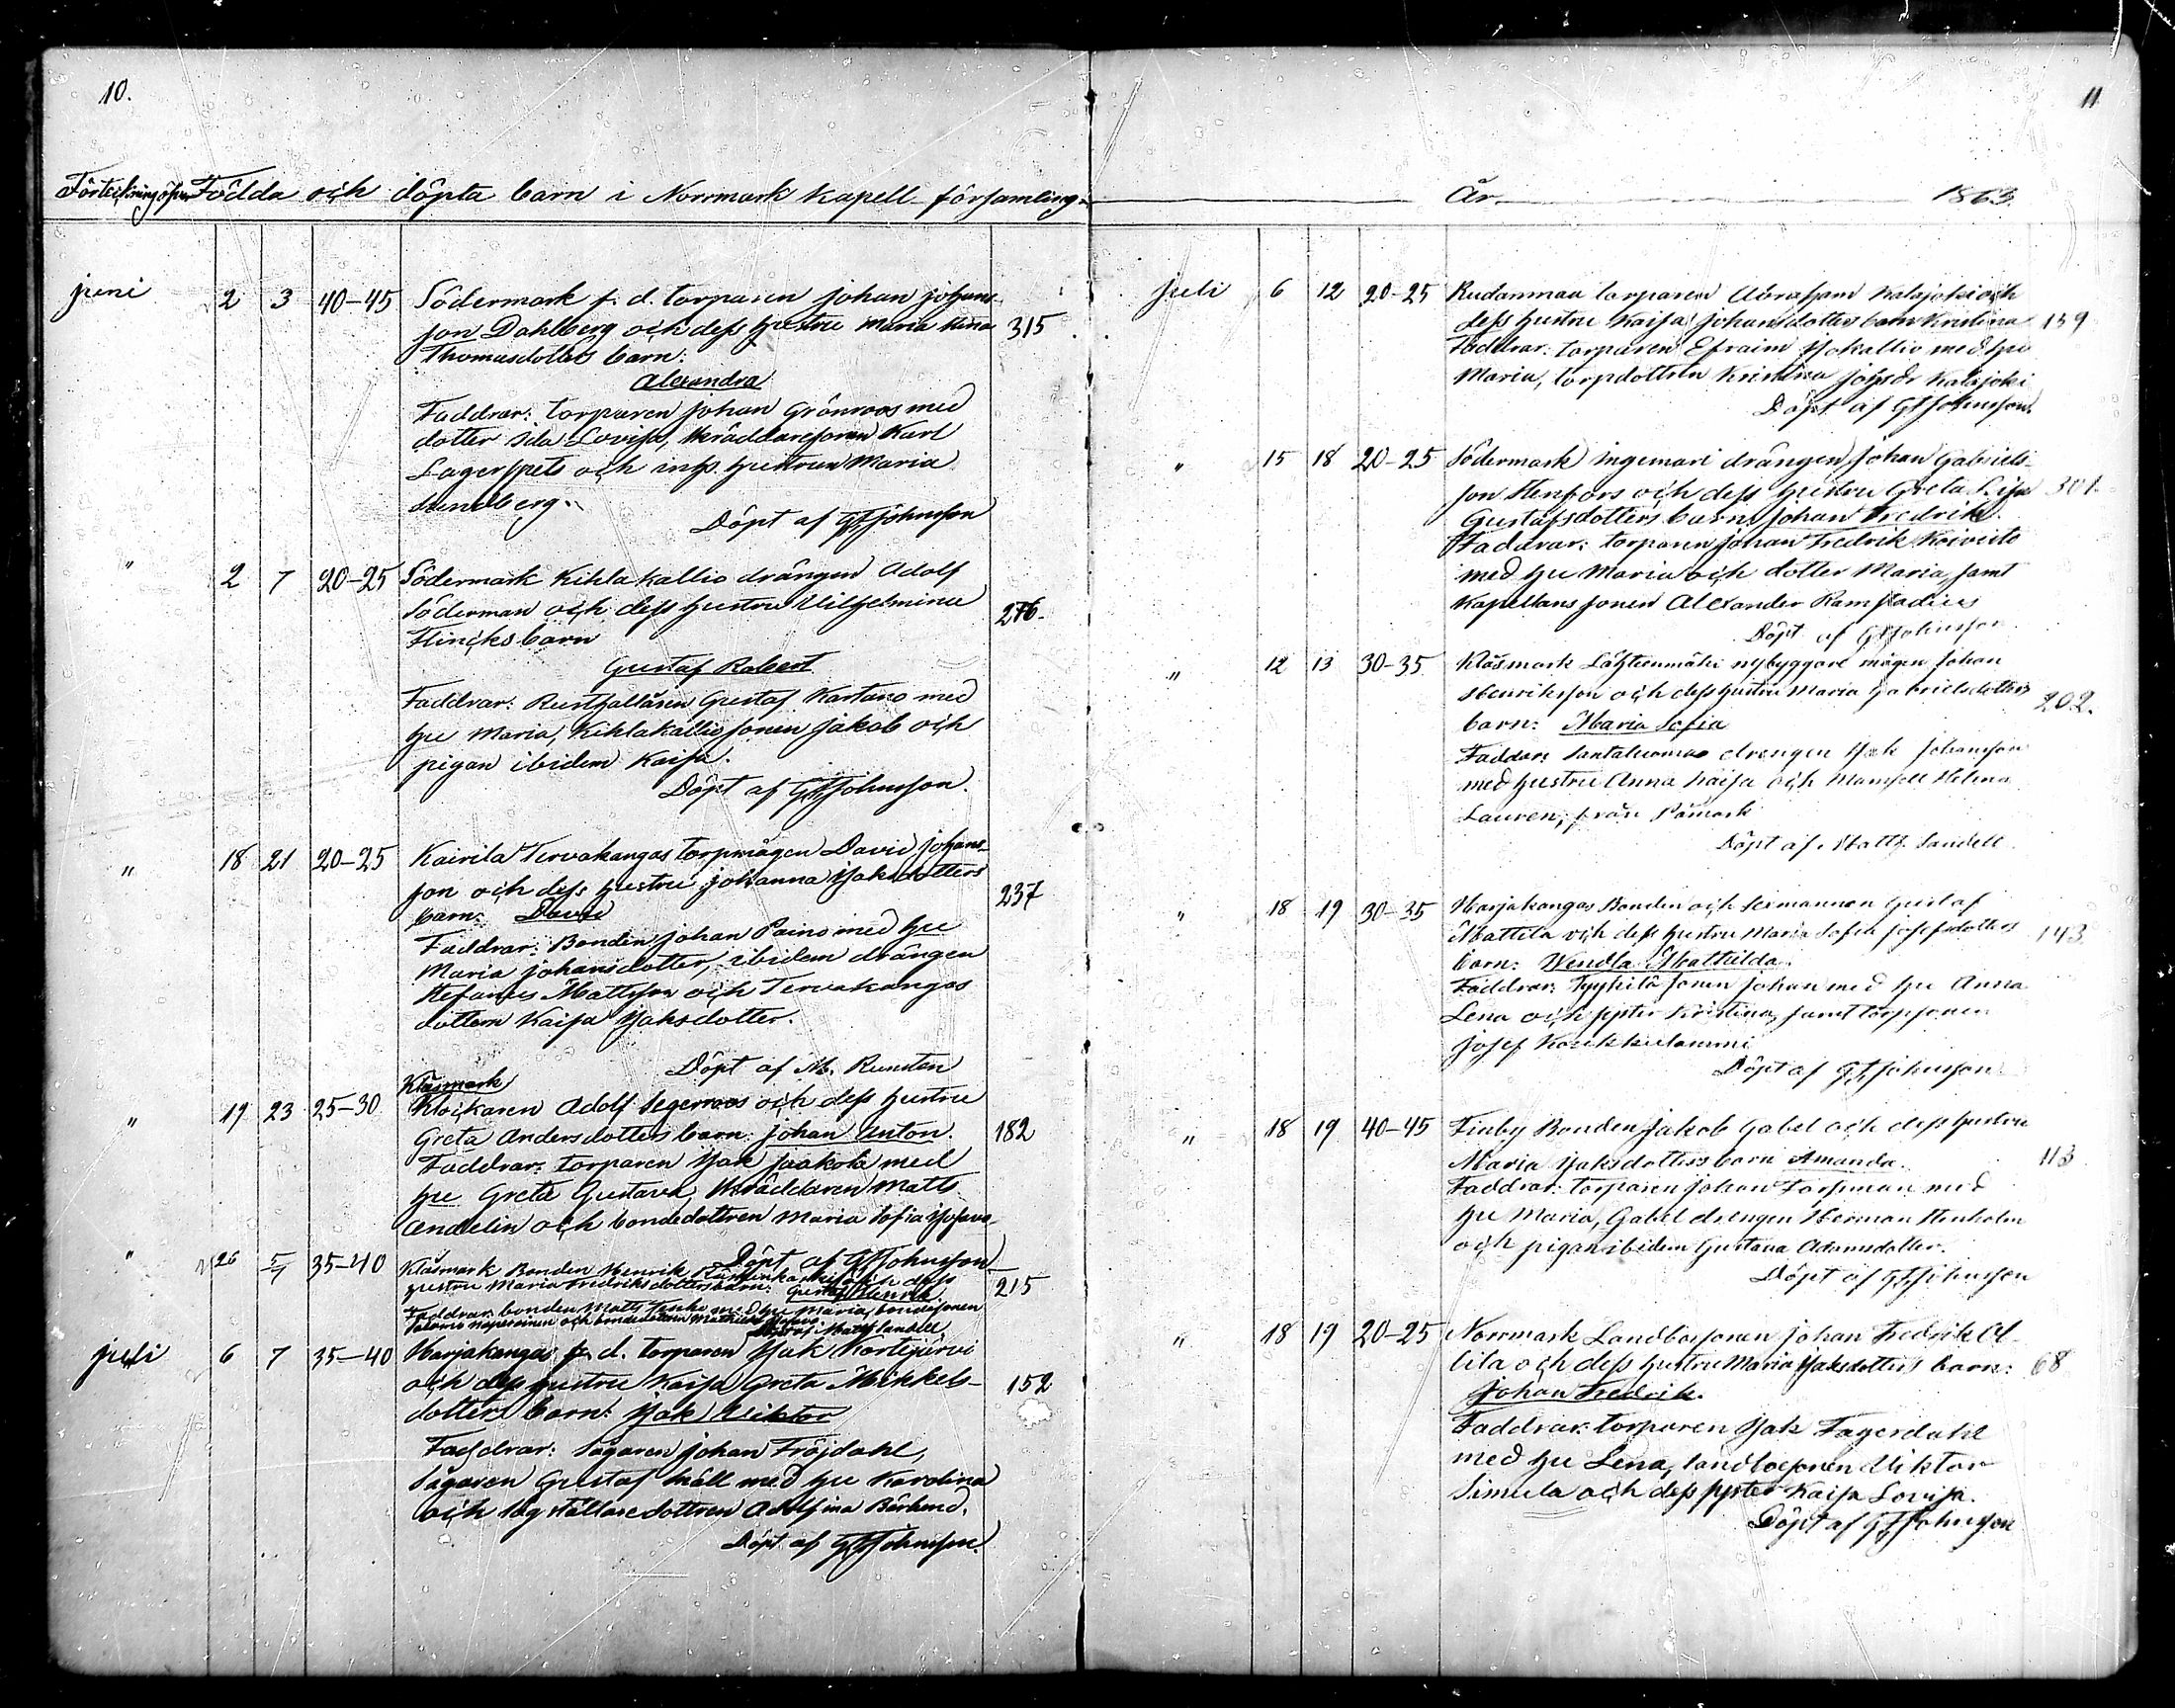 10.
Förteckning öfver Födda och döpta barn i Norrmark kapell-församling
juni 2 3 40-45 Södermark f. d. torparen Johan Johans-
son Dahlberg och dess hustru Maria Stina 315
Thomasdotters barn:
Alexandra
Faddrar: torparen Johan Grönroos med
dotter Ida Lovisa, skräddaresonen Karl
Lagerspets och inhs. hustrun Maria
Sundberg.
Döpt af GFJohnsson
" 2 7 20-25 Södermark Kihlakallio drängen Adolf
Söderman och dess hustru Vilhelmina 276.
Flincks barn
Gustaf Robert
Faddrar: Rusthållaren Gustaf Kartano med
hu Maria, Kihlakallio sonen Jakob och
pigan ibidem Kaisa.
Döpt af GFJohnsson.
" 18 21 20-25 Kairila Tervakangas torpmågen David Johans-
son och dess hustru Johanna Isaksdotters 237
barn: David
Faddrar: Bonden Johan Paino med hu
Maria Johansdotter, ibidem drängen
Stefanus Mattsson och Tervakangas
dottern Kaisa Isaksdotter.
Döpt af M. Runsten
Klåsmark
" 19 23 25-30 Klockaren Adolf Segerroos och dess hustru
Greta Andersdotters barn: Johan Anton. 182
Faddrar: torparen Isak Jaakola med
hu Greta Gustava, skräddaren Matts
Andelin och bondedottren Maria Sofia
Döpt af GFJohnsson
" 26 5/7 35-40 Klåsmark Bonden Henrik och dess
hustru Maria Fredriksdotters barn: Gustaf Henrik 215
Faddrar: bonden Matts med hu Maria, bondesonen
och bondedottern
Döpt af Matth Sandell
juli 6 7 35-40 Harjakangas f. d. torparen Isak Kortejärvi
och dess hustru Kaisa Greta Mikkels- 152
dotters barn: Isak Viktor
Faddrar: Sågaren Johan Fröjdahl,
Sågaren Gustaf Snäll med hu Karolina
och sågställaredottren Adolfina Bärlund.
Döpt af GFJohnsson.
11
År 1863.
juli 6 12 20-25 Rudanmaa torparen Abraham Kalajoki och
dess hustru Kaisa Johansdotters barn Kristina 159
Faddrar: torparen Efraim Isokallio med hu
Maria, torpdottren Kristina Johsdr Kalajoki
Döpt af GFJohnsson.
" 15 18 20-25 Södermark Ingemari drängen Johan Gabriels-
son Stenfors och dess hustru Greta Lisa 301.
Gustafsdotters barn Johan Fredrik.
Faddrar: torparen Johan Fredrik Koivisto
med hu Maria och dotter Maria, samt
Kapellans sonen Alexander Ramstadius
Döpt af GFJohnsson
" 12 13 30-35 Klåsmark Lähteenmäki nybyggare mågen Johan
Henriksson och dess hustru Maria Gabrielsdotters 202.
barn: Maria Sofia
Faddar: Santaluoma drengen Isak Johansson
med hustru Anna Kaisa och Mamsell Helena
Lauren, från Påmark
Döpt af Matth. Sandell
" 18 19 30-35 Harjakangas Bonden och Sexmannen Gustaf
Mattila och dess hustru Maria Sofia Josefsdotters 143
barn: Wendla Mathilda.
Faddrar: Fyyhilä sonen Johan med hu Anna
Lena och syster Kristina, samt torpsonen
Josef Koukkulammi
Döpt af GFJohnsson
" 18 19 40-45 Finby Bonden Jakob Gabel och dess hustru
Maria Isaksdotters barn Amanda. 113
Faddrar: torparen Johan Forsman med
hu Maria, Gabel drengen Herman Stenholm
och pigan ibidem Gustava Adamsdotter.
Döpt af GFJohnsson
" 18 19 20-25 Norrmark Landbosonen Johan Fredrik Al-
lila och dess hustru Maria Isaksdotters barn: 68
Johan Fredrik.
Faddrar: torparen Isak Fagerdahl
med hu Lena, landbosonen Viktor
Simula och dess syster Kaisa Lovisa.
Döpt af GFJohnsson